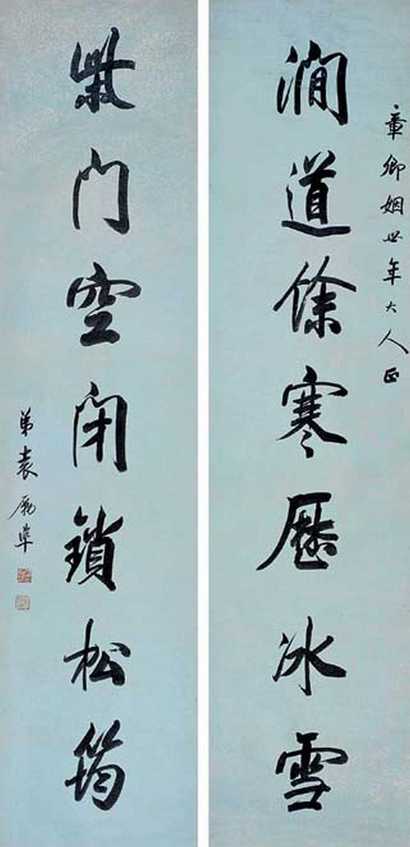 章卿姻世年大人正
澗道餘寒歷冰雪
柴門空閉鎖松筠
弟袁勵準